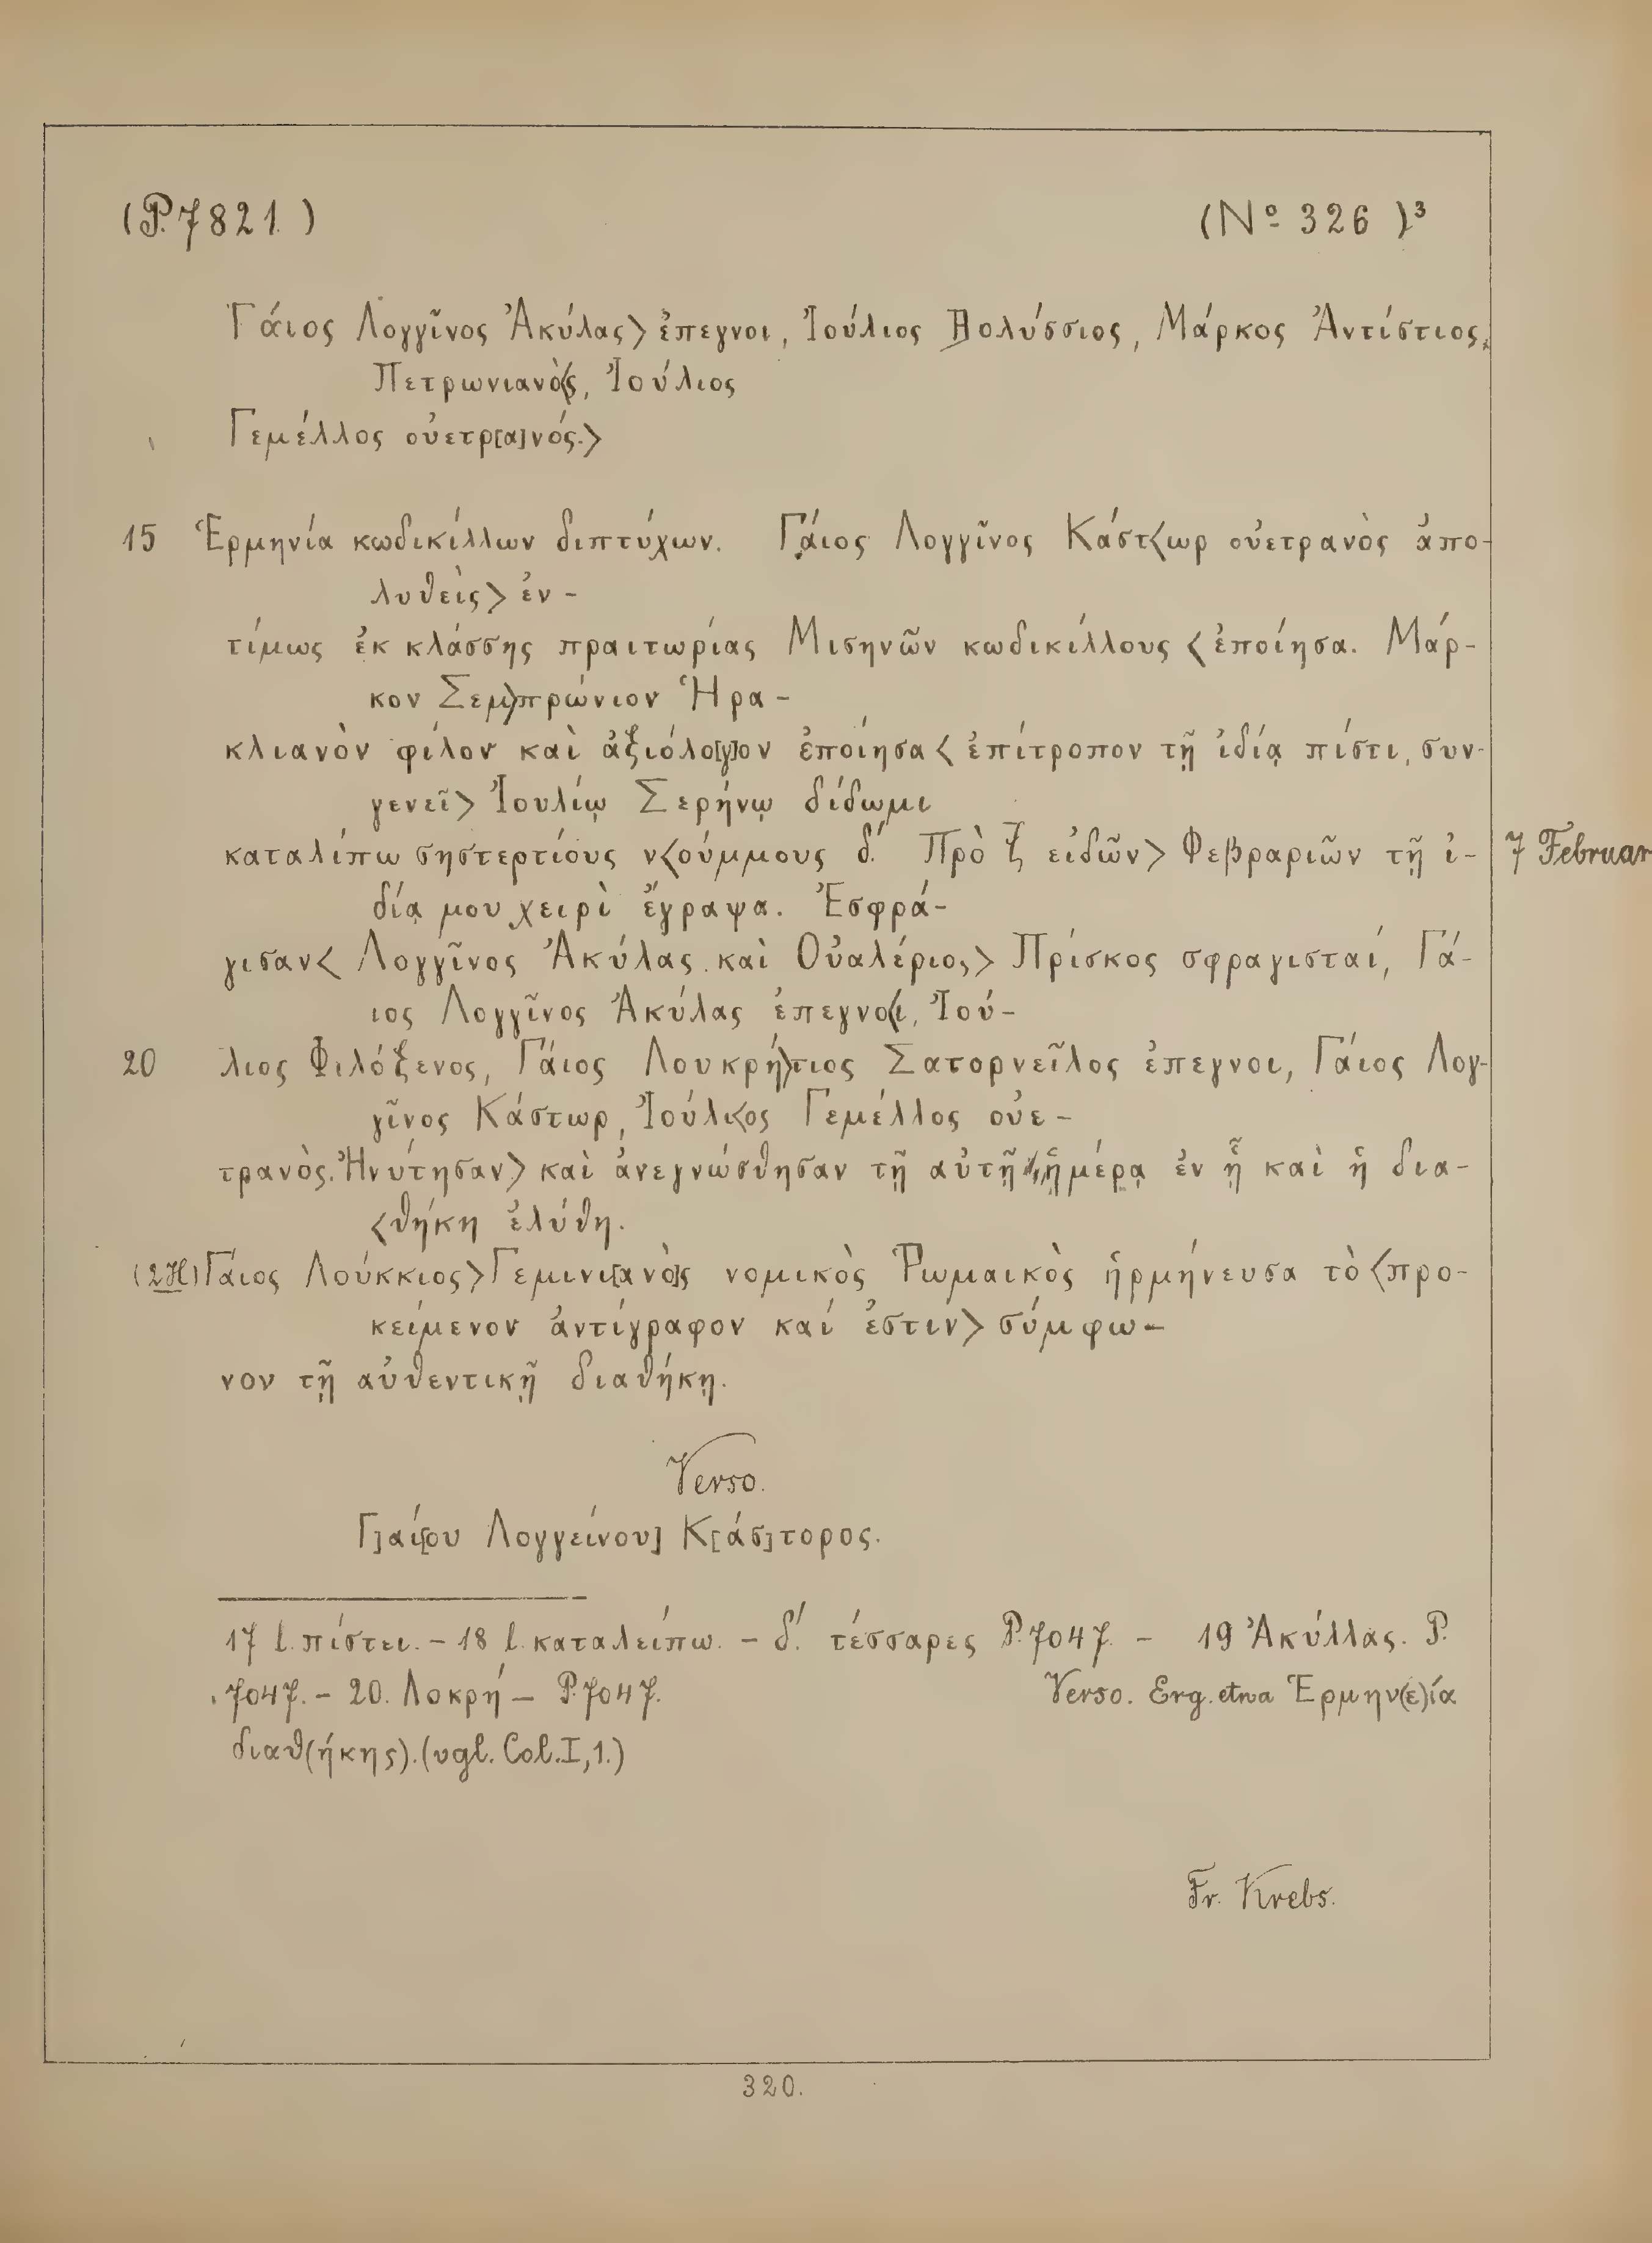 (P. 7821.) (Nº 326)³
Γάιος Λογγῖνος Ἀκύλας〉 ἐπεγνοι, Ἰούλιος Βολύσσιος, Μάρκος Ἀντίστιος,
Πετρωνιανὸ〈ς, Ἰούλιος
Γεμέλλος οὐετρ[α]νός.〉
15 Ἑρμηνία κωδικίλλων διπτύχων. Γάιος Λογγῖνος Κάστ〈ωρ οὐετρανὸς ἀπο-
λυθεὶς〉 ἐν-
τίμως ἐκ κλάσσης πραιτωρίας Μισηνῶν κωδικίλλους 〈ἐποίησα. Μάρ-
κον Σεμ〉πρώνιον Ἡρα-
κλιανὸν φίλον καὶ ἀξιόλο[γ]ον ἐποίησα〈 ἐπίτροπον τῇ ἰδίᾳ πίστι, συν-
γενεῖ〉 Ἰουλίῳ Σερήνῳ δίδωμι
καταλίπω σηστερτίους ν〈ούμμους δ΄. Πρὸ ζ εἰδῶν〉 Φεβραριῶν τῇ ἰ- 7 Februar
δίᾳ μου χειρὶ ἔγραψα. Ἐσφρά-
γισαν〈 Λογγῖνος Ἀκύλας καὶ Οὐαλέριος〉 Πρίσκος σφραγισταί, Γά-
ιος Λογγῖνος Ἀκύλας ἐπεγνο〈ι, Ἰού-
20 λιος Φιλόξενος, Γάιος Λουκρή〉τιος Σατορνεῖλος ἐπεγνοι, Γάιος Λογ-
γῖνος Κάστωρ, Ἰούλι〈ος Γεμέλλος οὐε-
τρανὸς. Ἠνύτησαν〉 καὶ ἀνεγνώσθησαν τῇ αὐτῇ ἡμέρᾳ ἐν ᾗ καὶ ἡ δια-
〈θήκη ἐλύθη.
(2H) Γάιος Λούκκιος〉 Γεμινι[ανὸ]ς νομικὸς Ῥωμαικὸς ἡρμήνευσα τὸ 〈προ-
κείμενον ἀντίγραφον καί ἐστιν〉 σύμφω-
νον τῇ αὐθεντικῇ διαθήκῃ.
Verso.
Γ]αί[ου Λογγείνου] Κ[άσ]τορος.
17 l. πίστει. – 18 l. καταλείπω. – δ΄. τέσσαρες P. 7047. – 19 Ἀκύλλας. P.
7047. – 20. Λοκρή – P. 7047. Verso. Erg. etwa Ἑρμην(ε)ία
διαθ(ήκης). (vgl. Col. I, 1.)
Fr. Krebs.
320.